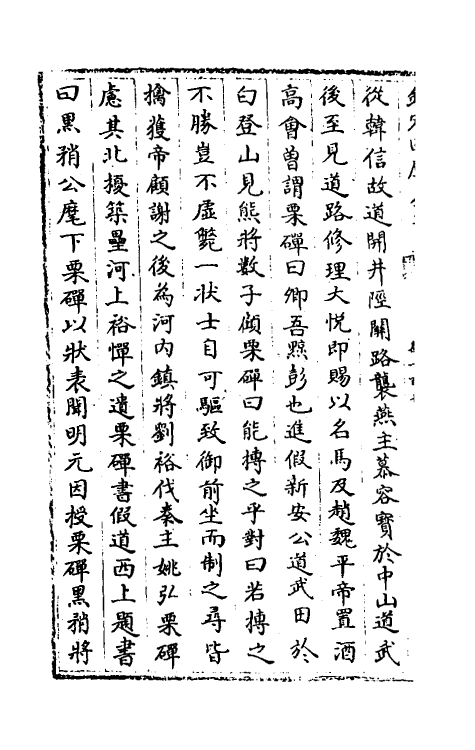 從韓信故道開井陘關路襲燕主慕容寳於中山道武
後至見道路修理大悅即賜以名馬及趙魏平帝置酒
高會曽謂栗磾曰卿吾黥彭也進假新安公道武田於
白登山見熊將数子顧栗磾曰能搏之乎對曰若搏之
不勝豈不虛斃一壮士自可驅致御前坐而制之尋皆
擒獲帝顧謝之後為河内鎮將劉裕伐秦主姚弘栗磾
慮其北擾築壘河上裕憚之遺栗磾書假道西上題書
曰黒矟公麾下栗磾以狀表聞明元因授栗磾黒矟將